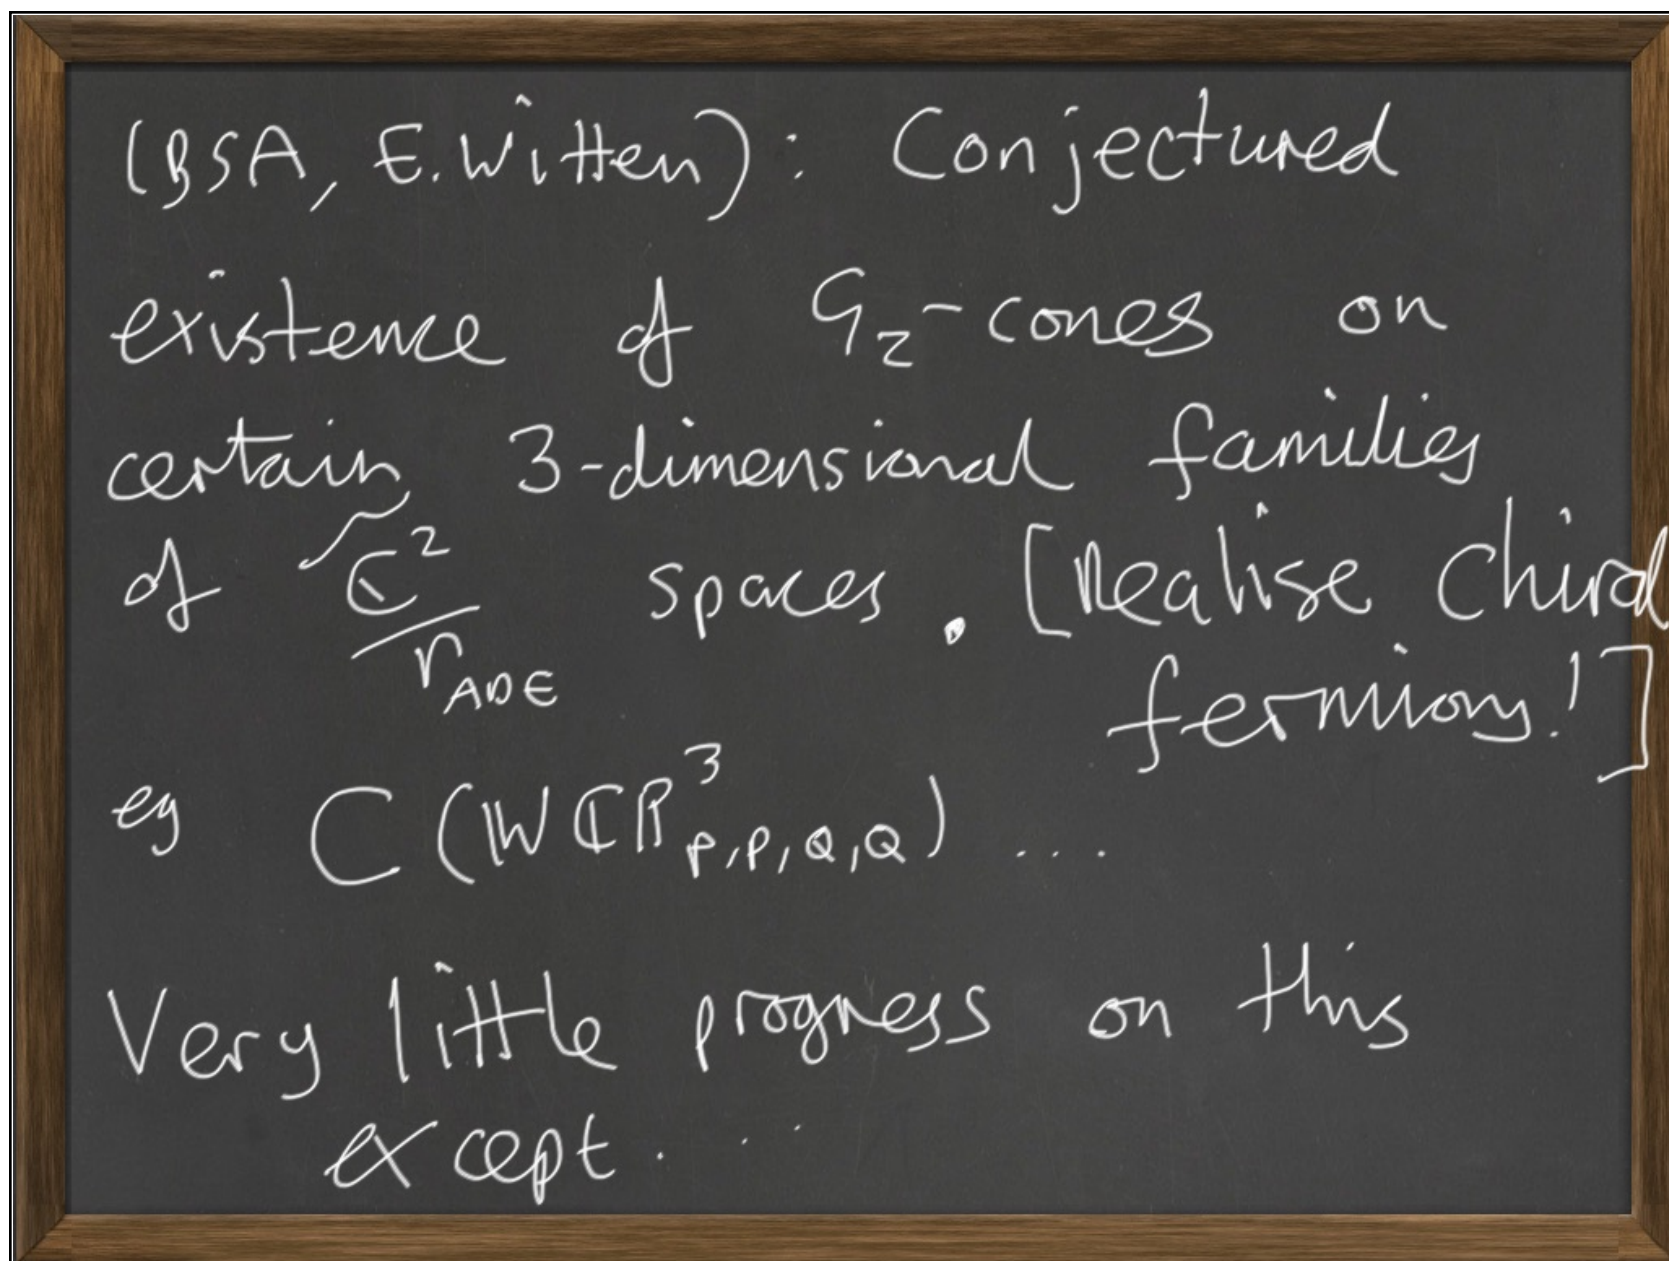 (BSA, E. Witten): Conjectured
existence of G₂-cones on
certain 3-dimensional families
of \widetilde{ℂ²/Γ_ADE} spaces. [Realise Chiral
fermions!]
eg C(Wℂℙ³_{P,P,Q,Q}) ...
Very little progress on this
except ...